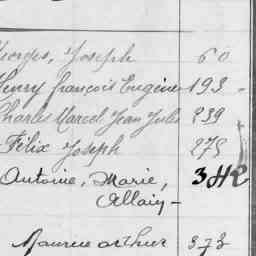 Georges, Joseph 60
Henry françois Eugène 193 -
Charles Marcel Jean Jules 239
Félix Joseph 275
Antoine, Marie, 342
Allain -
Maurice Arthur 373